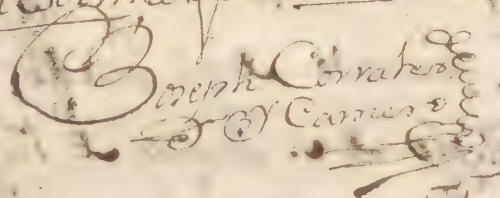 Joseph Corrales
y Camero